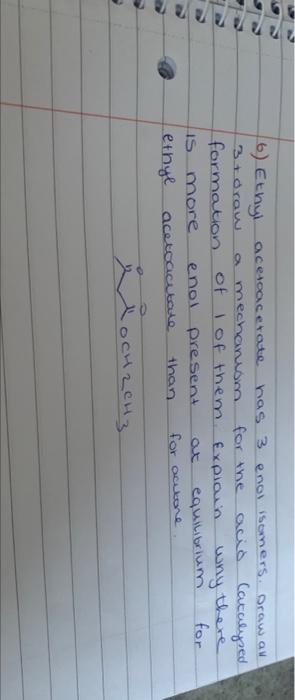 6) Ethyl acetoacetate has 3 enol isomers. Draw all
3 + draw a mechanism for the acid catalysed
formation of 1 of them. Explain why there
is more enol present at equilibrium for
ethyl acetoacetate than for acetone.
O O
OCH2CH3